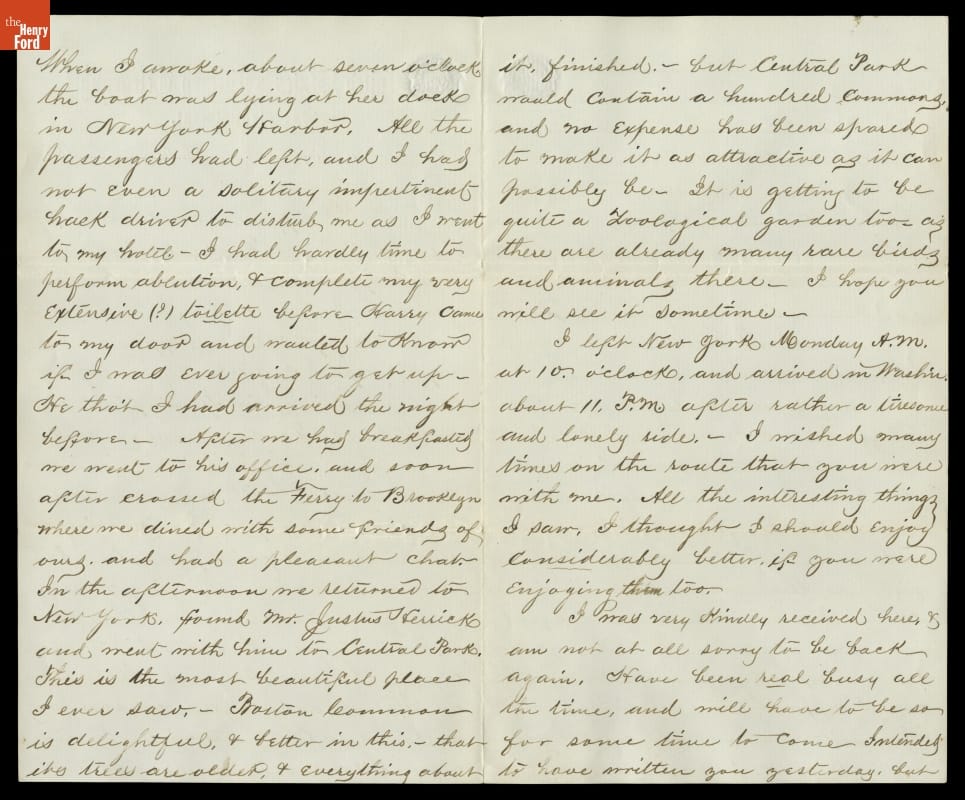 the
Henry
Ford
When I awoke, about seven o'clock
the boat was lying at her dock
in New York Harbor. All the
passengers had left, and I had
not even a solitary impertinent
hack driver to disturb me as I went
to my hotel – I had hardly time to
perform ablution, & complete my very
Extensive (?) toilette before Harry came
to my door and wanted to know
if I was ever going to get up –
He tho't I had arrived the night
before – After we had breakfasted
we went to his office, and soon
after crossed the Ferry to Brooklyn
where we dined with some friends of
ours. and had a pleasant chat.
In the afternoon we returned to
New York, found Mr. Justus Herrick
and went with him to Central Park.
This is the most beautiful place
I ever saw, – Boston Common
is delightful, & better in this, – that
its trees are older, & everything about
it, finished. – but Central Park
would contain a hundred Commons,
and no expense has been spared
to make it as attractive as it can
possibly be – It is getting to be
quite a Zoological garden too – as
there are already many rare birds
and animals there – I hope you
will see it sometime –
I left New York Monday A.M.
at 10. o'clock, and arrived in Washn.
about 11. P.M. after rather a tiresome
and lonely ride. – I wished many
times on the route that you were
with me. All the interesting things
I saw, I thought I should enjoy
considerably better, if you were
enjoying them too.
I was very kindly received here, &
am not at all sorry to be back
again. Have been real busy all
the time, and will have to be so
for some time to come Intended
to have written you yesterday, but